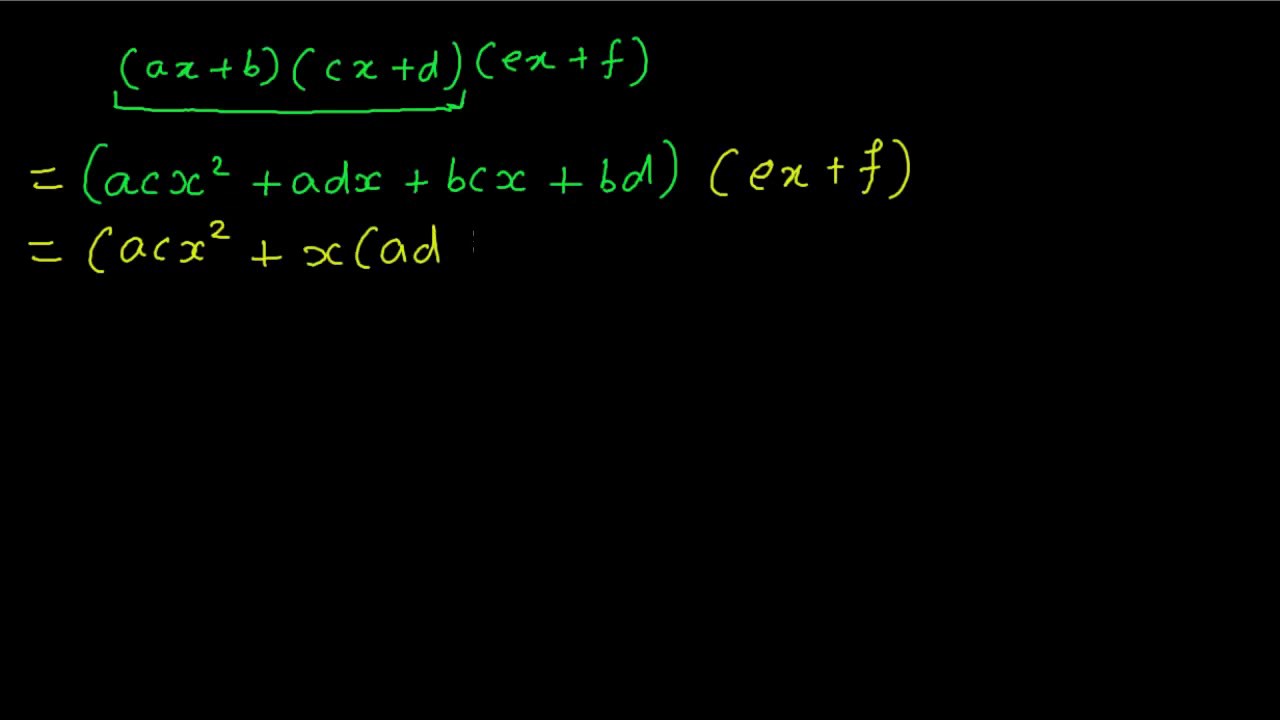 (ax+b)(cx+d)(ex+f)
= (acx² + adx + bcx + bd) (ex + f)
= (acx² + x(ad